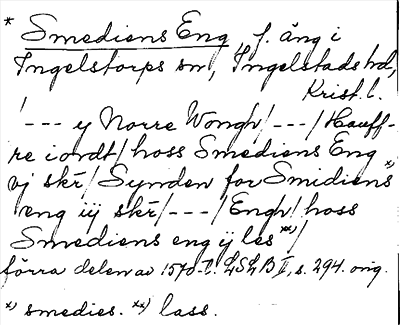 * Smediens Eng, f. äng i
Ingelstorps sn, Ingelstads hd,
Krist. l.
/--- y Norre Wongh/---/Hauff-
re iordt/hoss Smediens Eng *)
vj skr/Synden for Smidiens
eng iij skr/---/Engh/hoss
Smediens eng ij les **)/
förra delen av 1570-t. LSLB II, s. 294. orig.
*) smedies. **) lass.